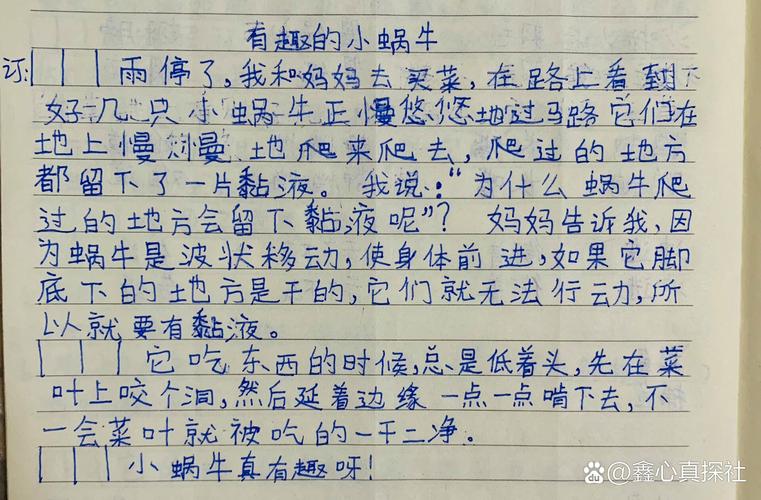 有趣的小蜗牛
订: 雨停了,我和妈妈去买菜,在路上看到下
好几只小蜗牛正慢悠悠地过马路它们在
地上慢慢地爬来爬去,爬过的地方
都留下了一片黏液。我说:“为什么蜗牛爬
过的地方会留下黏液呢”?妈妈告诉我,因
为蜗牛是波状移动,使身体前进,如果它脚
底下的地方是干的,它们就无法行动,所
以就要有黏液。
它吃东西的时候,总是低着头,先在菜
叶上咬个洞,然后延着边缘一点一点啃下去,不
一会菜叶就被吃的一干二净。
小蜗牛真有趣呀!
Bai du @鑫心真探社